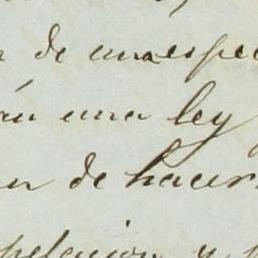 de una espe
án una ley
de hacer
pelacion y